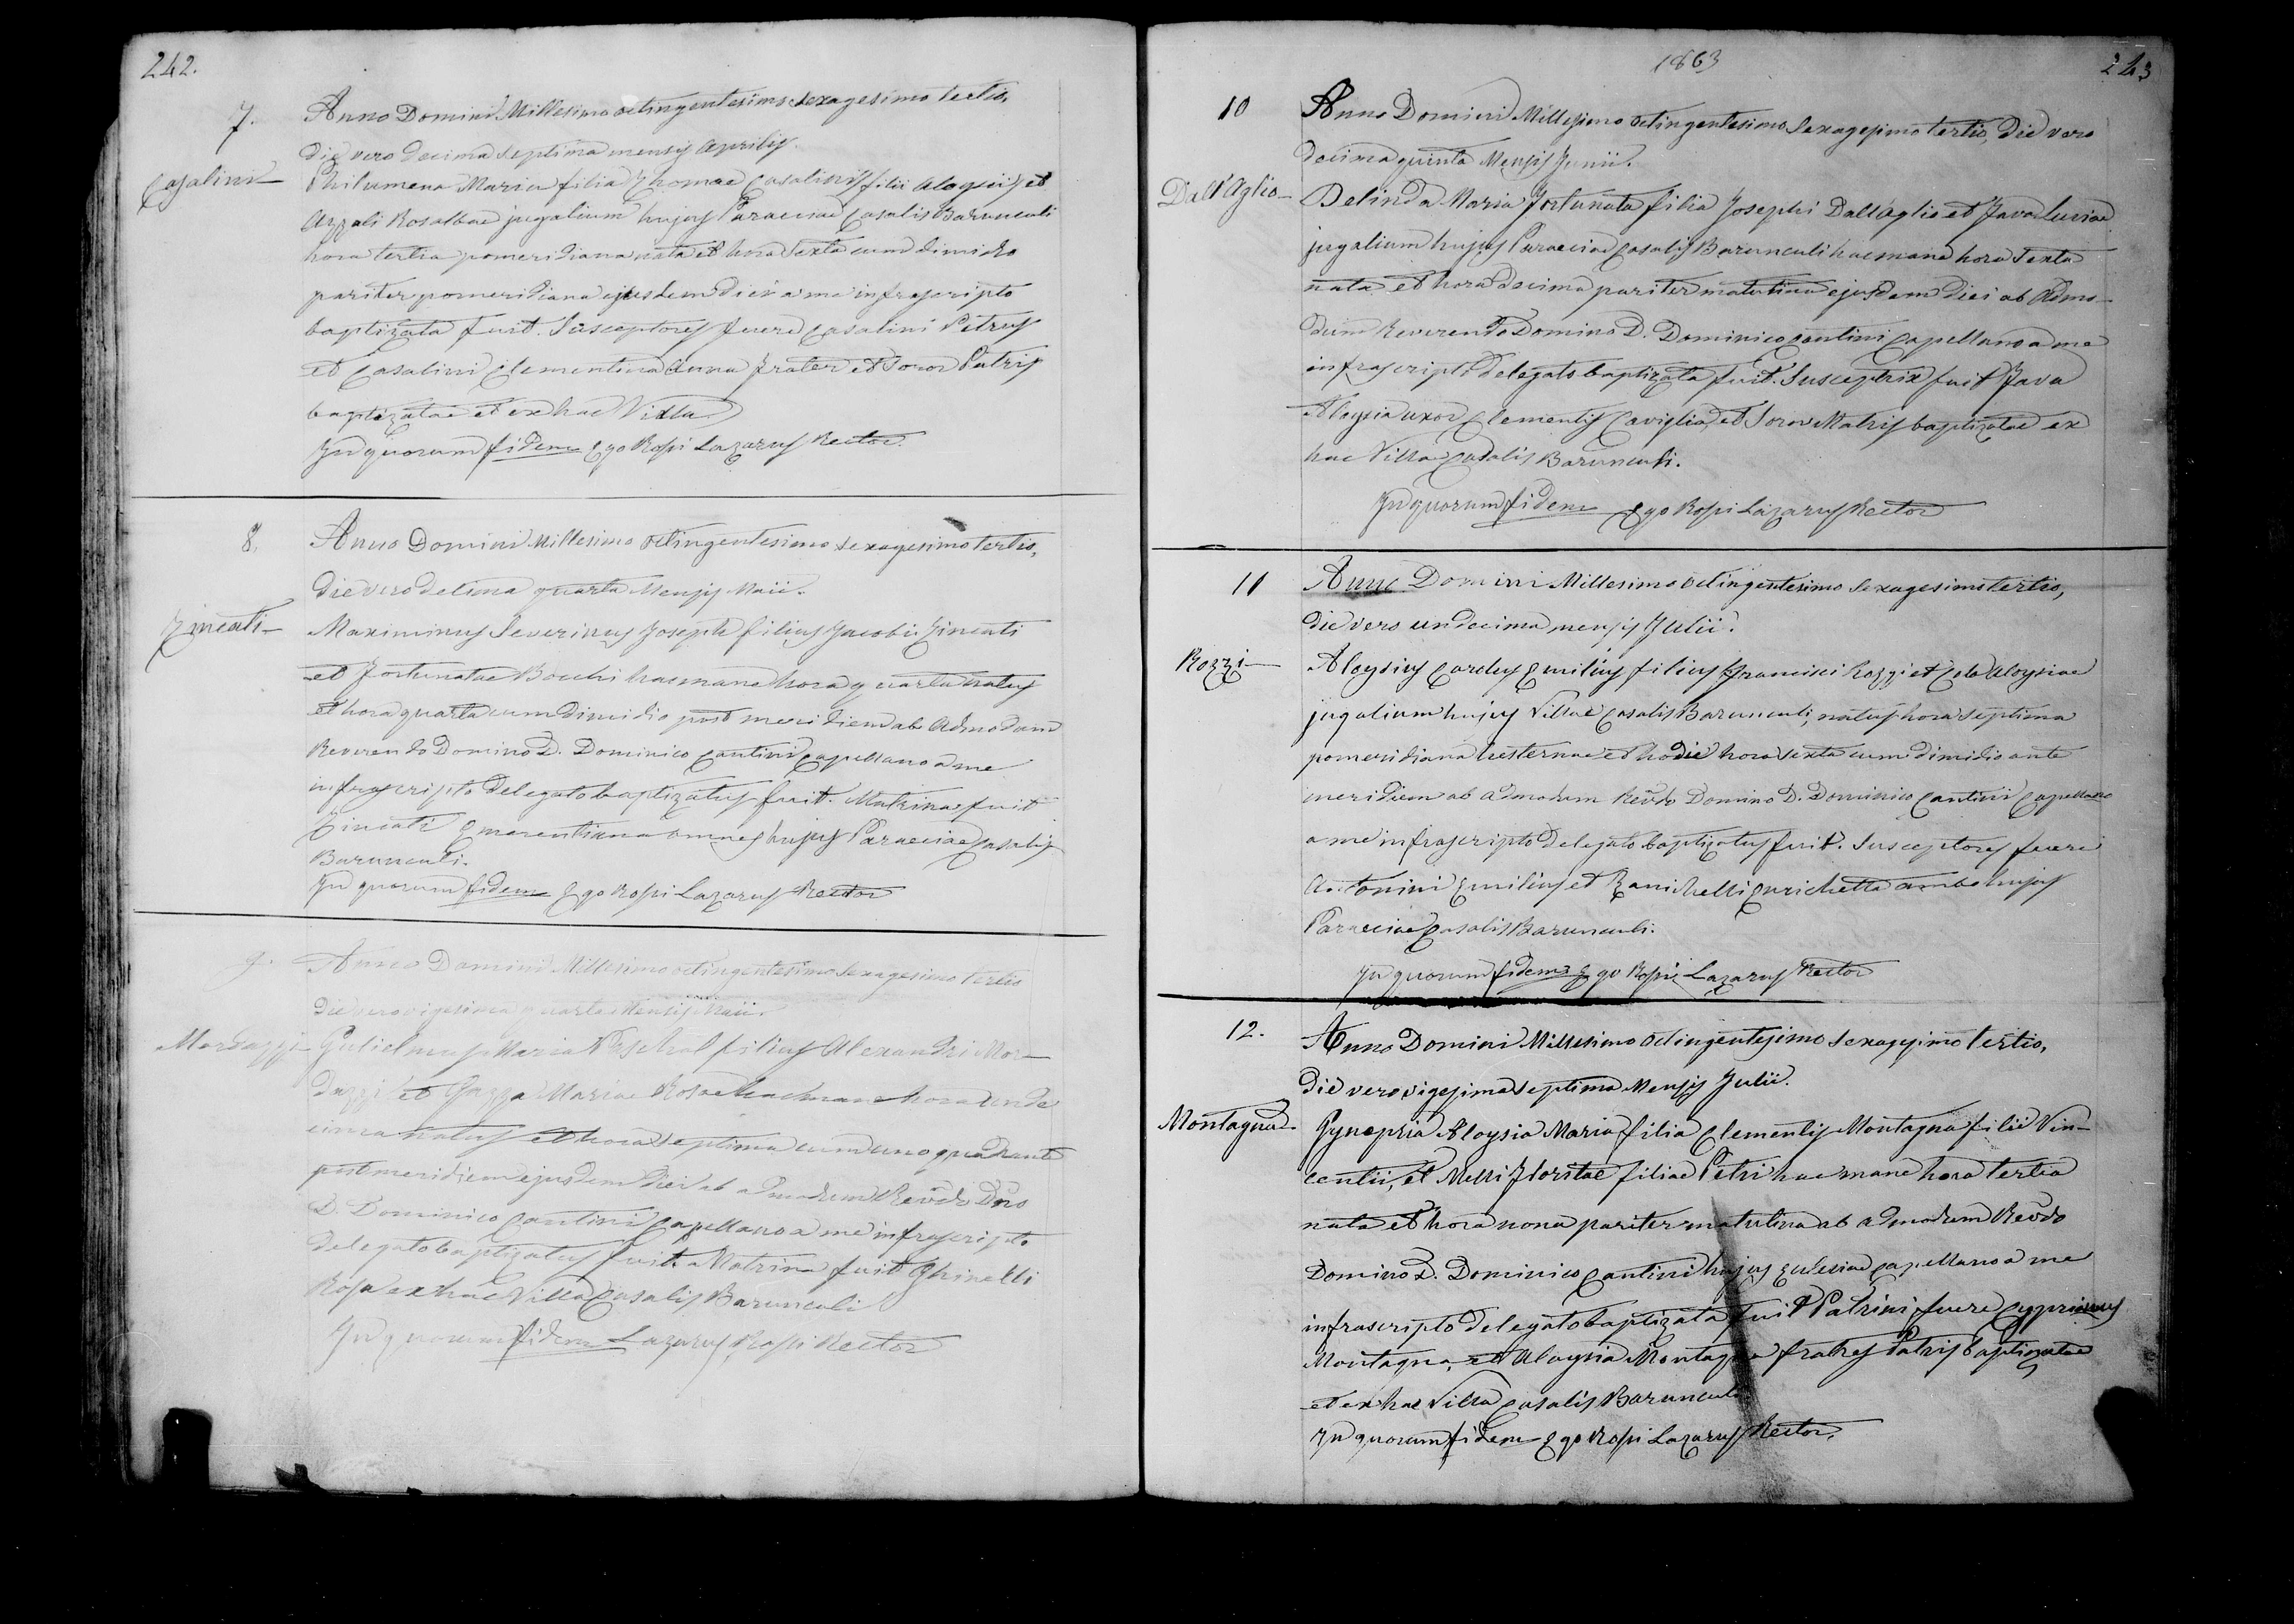 242.
7.
Anno Domini Millesimo octingentesimo sexagesimo tertio,
die vero decima septima mensis Aprilis.
Casalini
Philumena Maria filia Thomae Casalini filii Aloysii et
Azzali Rosalbae jugalium hujus Paraeciae Casalis Barunculi
hora tertia pomeridiana nata et hora sexta cum dimidio
pariter pomeridiana ejusdem diei a me infrascripto
baptizata fuit. Susceptores fuere Casalini Petrus
et Casalini Clementina Anna frater et Soror Patris
baptizatae et ex hac Villa
In quorum fidem Ego Rossi Lazarus Rector.
8.
Anno Domini Millesimo octingentesimo sexagesimo tertio,
die vero decima quarta Mensis Maii.
Zincati
Maximinus Severinus Joseph filius Jacobi Zincati
et Fortunatae Bocchi hac mane hora quarta natus
et hora quarta cum dimidio post meridiem ab Admodum
Reverendo Domino D. Dominico Cantini Capellano a me
infrascripto delegato baptizatus fuit. Matrina fuit
Zincati Emerentiana omnes hujus Paraeciae Casalis
Barunculi.
In quorum fidem Ego Rossi Lazarus Rector
9.
Anno Domini Millesimo octingentesimo sexagesimo tertio
die vero vigesima quarta Mensis Maii.
Mordazzi
Gulielmus Maria Paschal filius Alexandri Mor-
dazzi et Gazza Mariae Rosae hac mane hora unde
cima natus et hora septima cum uno quadrante
post meridiem ejusdem diei ab admodum Revdo Dno
D. Dominico Cantini Capellano a me infrascripto
delegato baptizatus fuit. Matrina fuit Ghinelli
Rosa ex hac Villa Casalis Barunculi
In quorum fidem Lazarus Rossi Rector
1863
243
10
Anno Domini Millesimo octingentesimo Sexagesimo tertio, die vero
decima quinta Mensis Junii.
Dall'Aglio
Delinda Maria Fortunata filia Josephi Dall'aglio et Fava Luciae
jugalium hujus Paraeciae Casalis Barunculi hac mane hora sexta
nata et hora decima pariter matutina ejusdem diei ab Admo-
dum Reverendo Domino D. Dominico Cantini Capellano a me
infrascripto delegato baptizata fuit. Susceptrix fuit Fava
Aloysia uxor Clementis Caviglia, et Soror Matris baptizatae ex
hac Villa Casalis Barunculi.
In quorum fidem Ego Rossi Lazarus Rector
11
Anno Domini Millesimo octingentesimo sexagesimo tertio,
die vero undecima mensis Julii.
Rozzi
Aloysius Carolus Emilius filius Francisci Rozzi et Aloysiae
jugalium hujus Villae Casalis Barunculi, natus hora septima
pomeridiana hesternae et hodie hora sexta cum dimidio ante
meridiem ab admodum Revdo Domino D. Dominico Cantini Capellano
a me infrascripto delegato baptizatus fuit. Susceptores fuere
Antonini Emilius et Zanichelli Enrichetta ambo hujus
Paraeciae Casalis Barunculi.
In quorum fidem Ego Rossi Lazarus Rector
12.
Anno Domini Millesimo octingentesimo sexagesimo tertio,
die vero vigesima septima Mensis Julii.
Montagna
Aloysia Maria filia Clementis Montagna filii Vin-
centii, et Melli Floritae filiae Petri hac mane hora tertia
nata et hora nona pariter matutina ab admodum Revdo
Domino D. Dominico Cantini hujus Ecclesiae Capellano a me
infrascripto delegato baptizata fuit Patrini fuere Cyprianus
Montagna, et Aloysia Montagna fratres Patris baptizatae
et ex hac Villa Casalis Barunculi
In quorum fidem Ego Rossi Lazarus Rector.